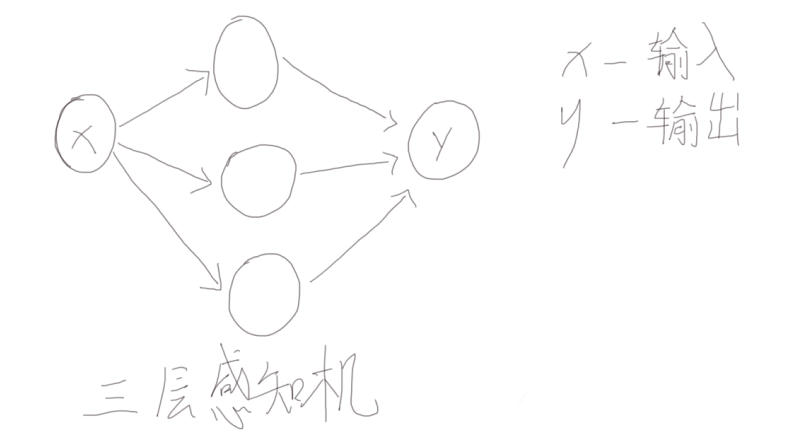 x
y
x - 输入
y - 输出
三层感知机